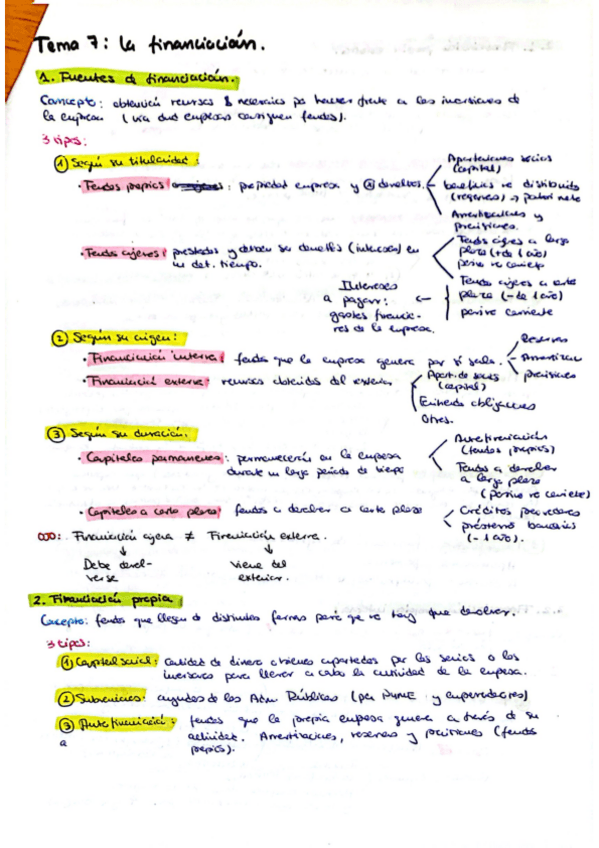 Tema 7: la financiación.
1. Fuentes de financiación.
Concepto: obtención recursos necesarios pa hacer frente a las inversiones de
la empresa (vía cual empresas consiguen fondos).
3 tipos:
① Según su titularidad:
Aportaciones socios
(capital)
• Fondos propios : propiedad empresa y devolver.
beneficios no distribuido
(reservas) → patri neto
Amortizaciones y
provisiones.
• Fondos ajenos: prestados y deben ser devueltos (intereses) en
un det. tiempo.
Fondos ajenos a largo
plazo (+ de 1 año)
pasivo no corriente
Fondos ajenos a corto
plazo (- de 1 año)
pasivo corriente
Intereses
a pagar: ←
gastos financie-
res de la empresa.
② Según su origen:
• Financiación interna: fondos que la empresa genera por sí sola.
Reservas
Amortizac
provisiones
• Financiación externa: recursos obtenidos del exterior
Aport. de socios
(capital)
Emitiendo obligaciones
Otros.
③ Según su duración.
• Capitales permanentes: permanecerán en la empresa
durante un largo periodo de tiempo
Autofinanciación
(fondos propios)
Fondos a devolver
a largo plazo
(pasivo no corriente)
• Capitales a corto plazo: fondos a devolver a corto plazo
Créditos proveedores
préstamos bancarios
(- 1 año).
OJO: Financiación ajena ≠ Financiación externa.
↓ ↓
Debe devol-
verse
Viene del
exterior.
2. Financiación propia
Concepto: fondos que llegan de distintas formas pero que no hay que devolver.
3 tipos:
① Capital social: cantidad de dinero o bienes aportados por los socios o los
inversores para llevar a cabo la actividad de la empresa.
② Subvenciones: ayudas de las Adm Públicas (pa PYME y emprendedores)
③ Autofinanciación: fondos que la propia empresa genera a través de su
a
actividad. Amortizaciones, reservas y provisiones (fondos
propios).